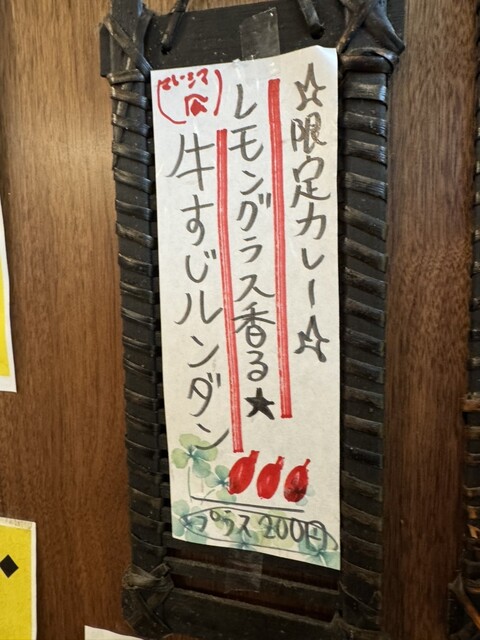 ☆限定カレー☆
レモングラス香る★
牛すじルンダン
プラス200円